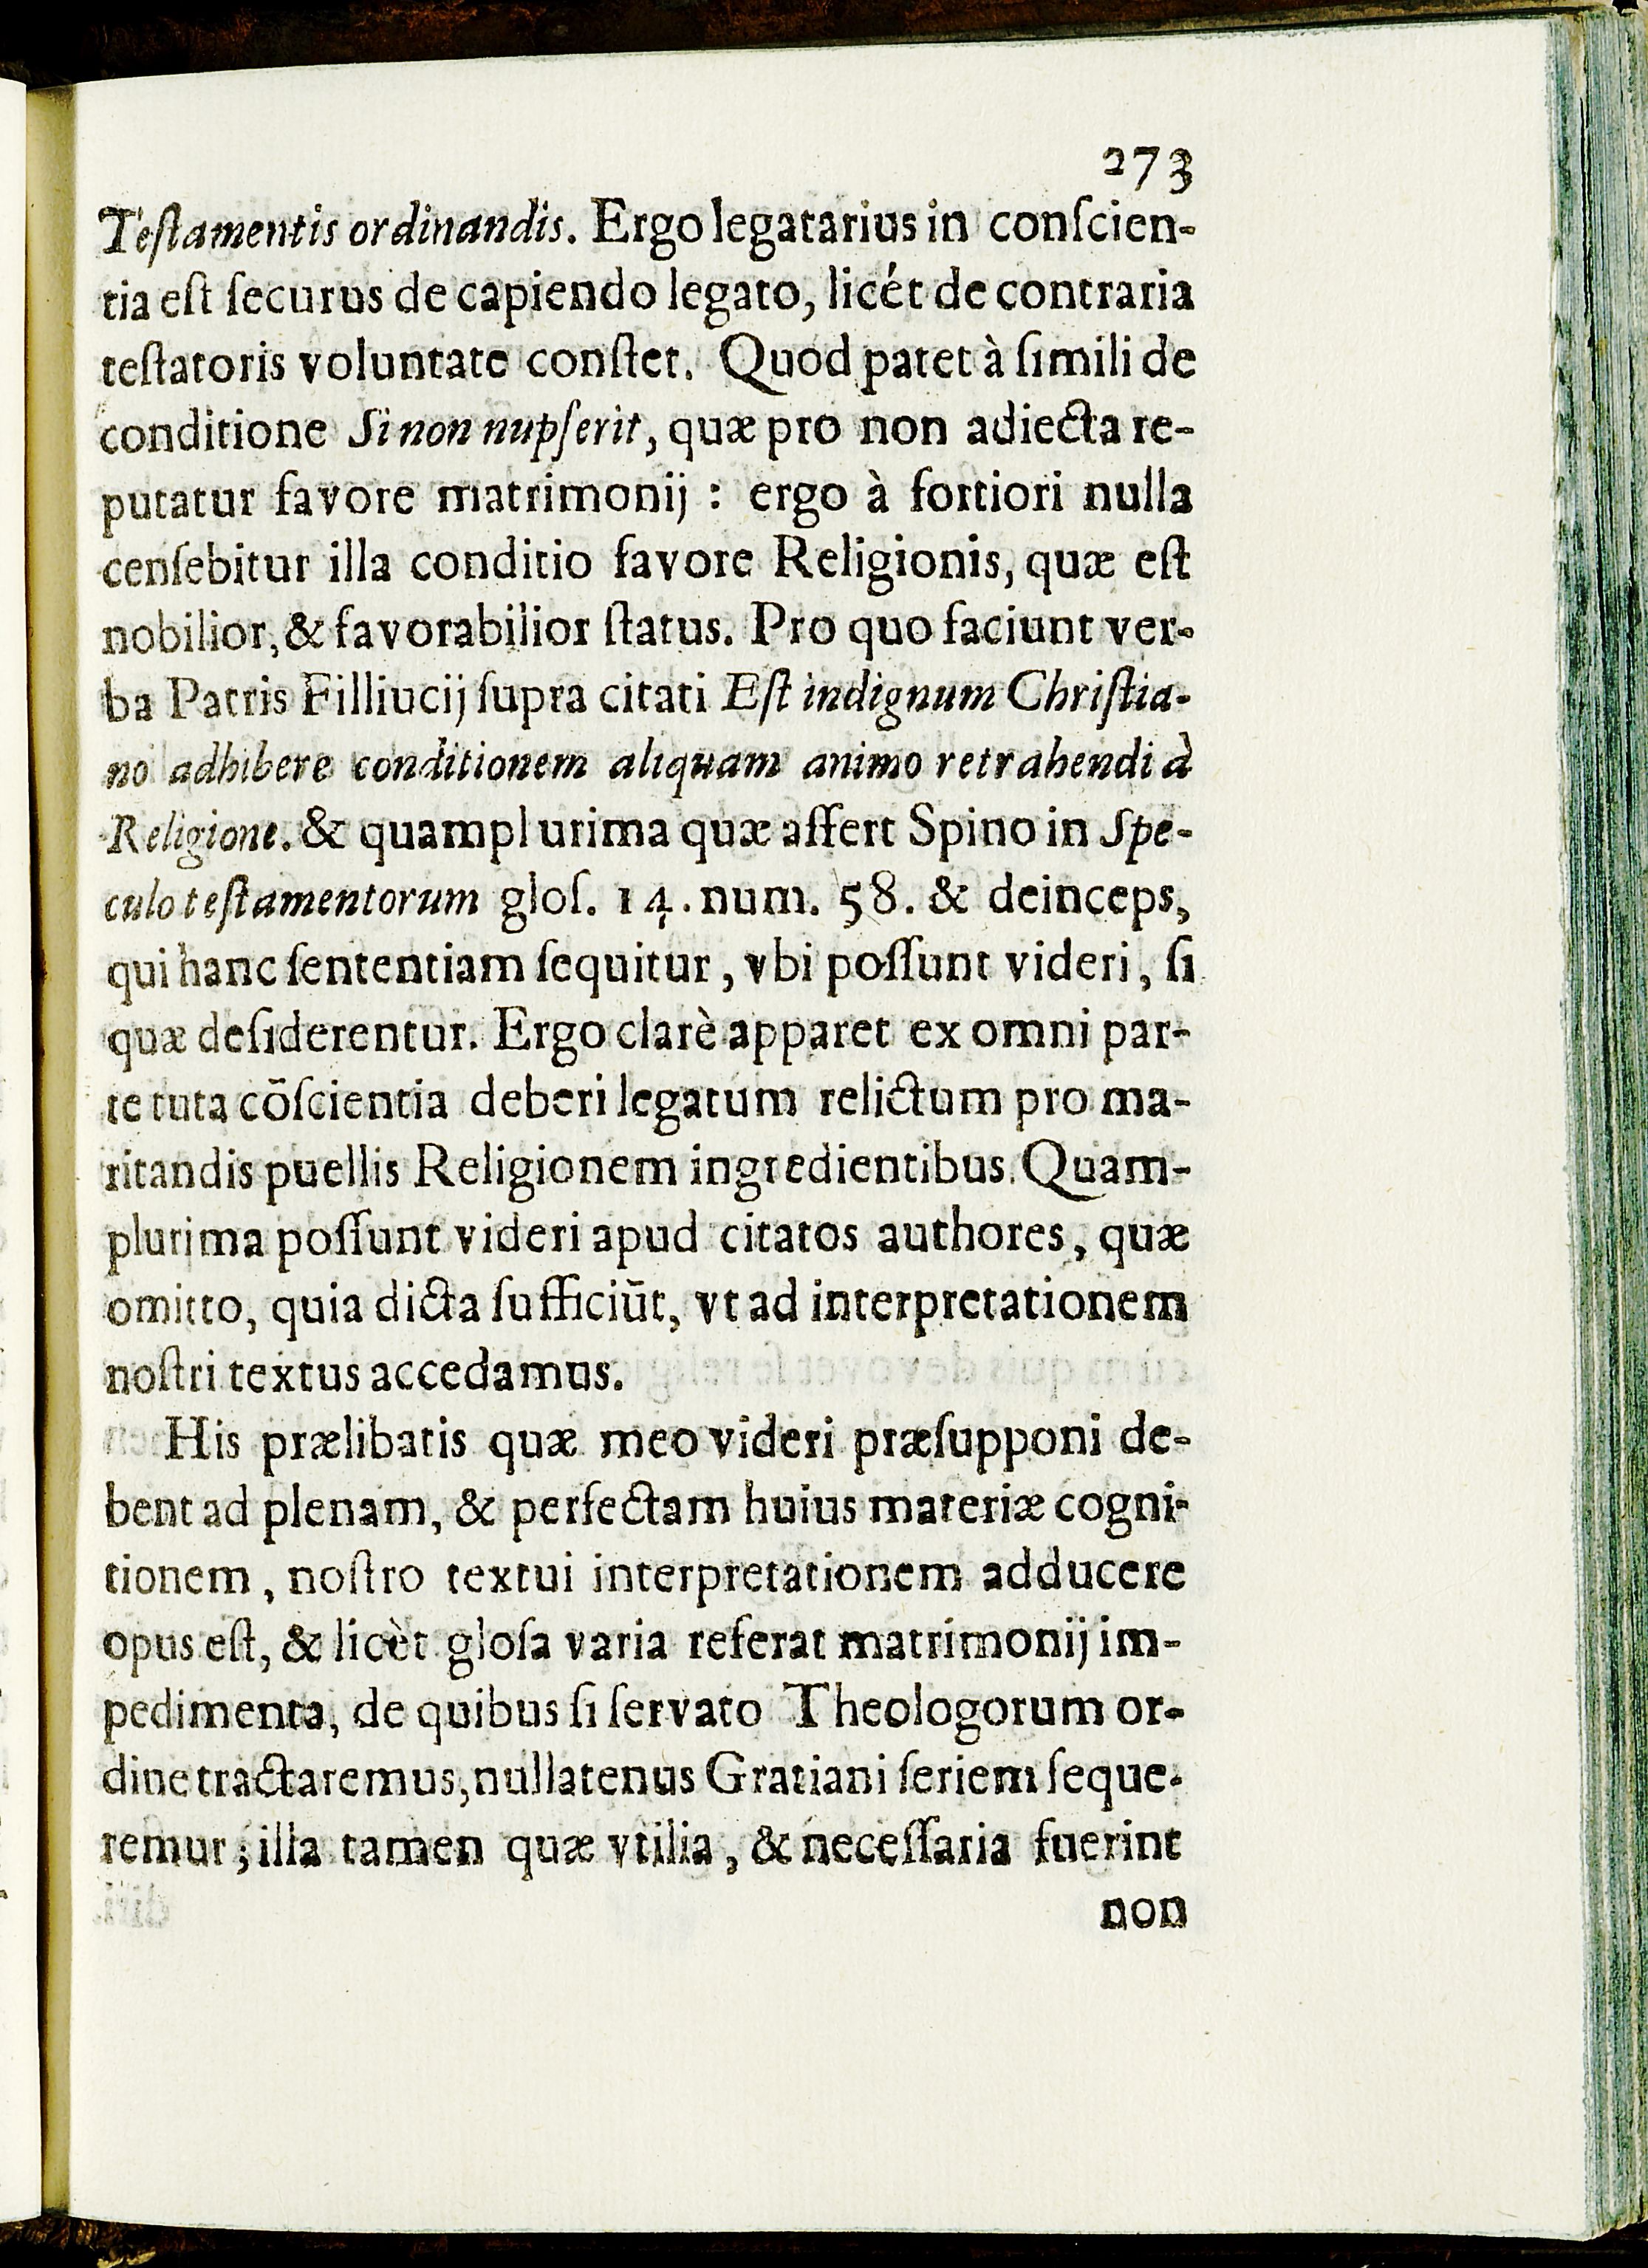 273
Teſtamentis ordinandis. Ergo legatarius in conſcien-
tia eſt ſecurus de capiendo legato, licét de contraria
teſtatoris voluntate conſtet. Quod patet à ſimili de
conditione Si non nupſerit, quæ pro non adiecta re-
putatur favore matrimonij : ergo à fortiori nulla
cenſebitur illa conditio favore Religionis, quæ eſt
nobilior, & favorabilior ſtatus. Pro quo faciunt ver-
ba Patris Filliucij ſupra citati Eſt indignum Chriſtia-
no adhibere conditionem aliquam animo retrahendi à
Religione. & quamplurima quæ affert Spino in Spe-
culo teſtamentorum gloſ. 14. num. 58. & deinceps,
qui hanc ſententiam ſequitur, vbi poſſunt videri, ſi
quæ deſiderentur. Ergo clarè apparet ex omni par-
te tuta cõſcientia deberi legatum relictum pro ma-
ritandis puellis Religionem ingredientibus. Quam-
plurima poſſunt videri apud citatos authores, quæ
omitto, quia dicta ſufficiũt, vt ad interpretationem
noſtri textus accedamus.
His prælibatis quæ meo videri præſupponi de-
bent ad plenam, & perfectam huius materiæ cogni-
tionem, noſtro textui interpretationem adducere
opus eſt, & licèt gloſa varia referat matrimonij im-
pedimenta, de quibus ſi ſervato Theologorum or-
dine tractaremus, nullatenus Gratiani ſeriem ſeque-
remur; illa tamen quæ vtilia, & neceſſaria fuerint
non